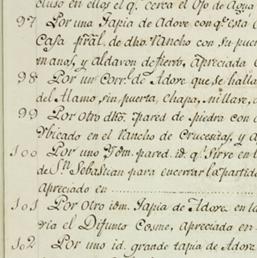 cluso en ellos el q.e cerca el Ojo de Agua
97 Por una Tapia de Adove con q.e esta
Casa pral. de dho. Rancho con su puer
en anos, y aldavon de fierro, apreciada
98 Por un Corr.l de Adove que se halla
del Alamo, sin puerta, chapa, ni llave,
99 Por Otro dho. pared de piedra con
Ubicado en el Rancho de Crucenitas, y a
100 Por uno Ydm. pared. id. q.e Sirve en
de S.n Sebastian para encerrar la partida
Apreciado en
101 Por Otro idm. Tapia de Adove en la
ria el Difunto Cosme, Apreciada en
102 Por uno id. grande tapia de Adove